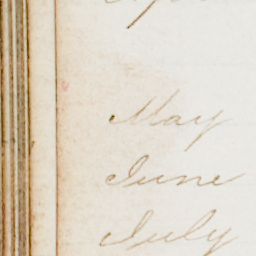 May
June
July